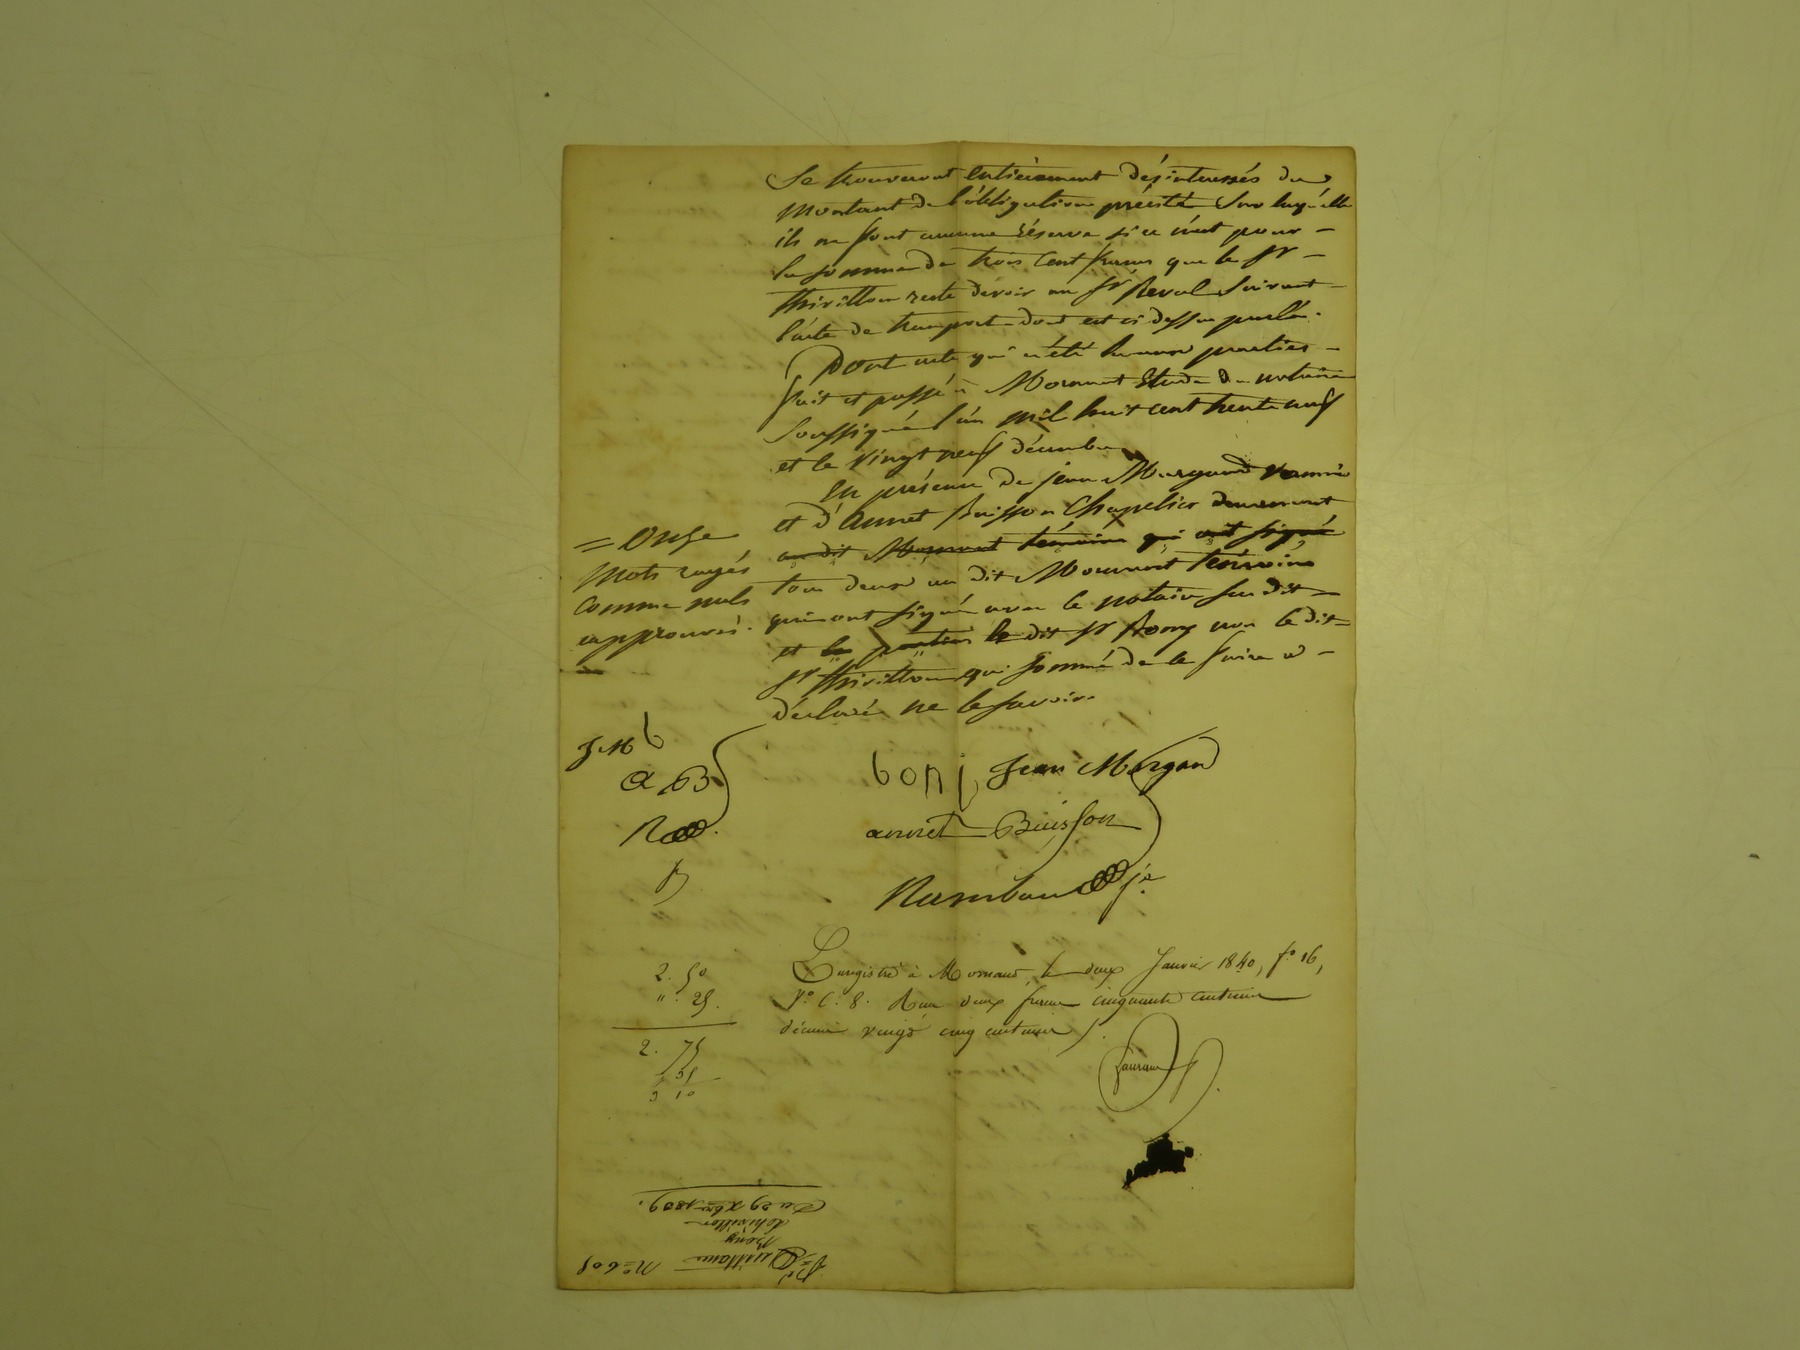 Se trouveront entièrement désinteressés du
montant de l'obligation précité sur laquelle
ils ne font aucune réserve si ce n'est pour
la somme de trois cent francs que le Sr
thivillon reste devoir au Sr Reval suivant
l'acte de transport dont est ci dessus parlé.
Dont acte qui a été lu aux parties
fait et passé à Mornant Etude du notaire
soussigné l'an mil huit cent trente neuf
et le vingt neuf décembre
En présence de jean Margand
et d'annet Buisson Chapelier demeurant
au dit Mornant témoins qui ont signé
tous deux au dit Mornant témoins
qui ont signé avec le notaire sus dit
et les parties le dit Sr Bony non le dit
Sr thivillon qui sommé de le faire a
déclaré ne le savoir.
= Onze
mots rayés
comme nuls
approuvés.
J M b
a B
R
boni Jean Margand
annet Buisson
Rambaud je
Enregistré à Mornant, le deux Janvier 1840, fo 16,
Vo C. 8. Reçu deux francs cinquante centimes
décime vingt cinq centimes
2. 50
". 25.
2. 75
35
3 10
Du 29 Xbre 1839.
thivillon
Bony
Quittance
No 608